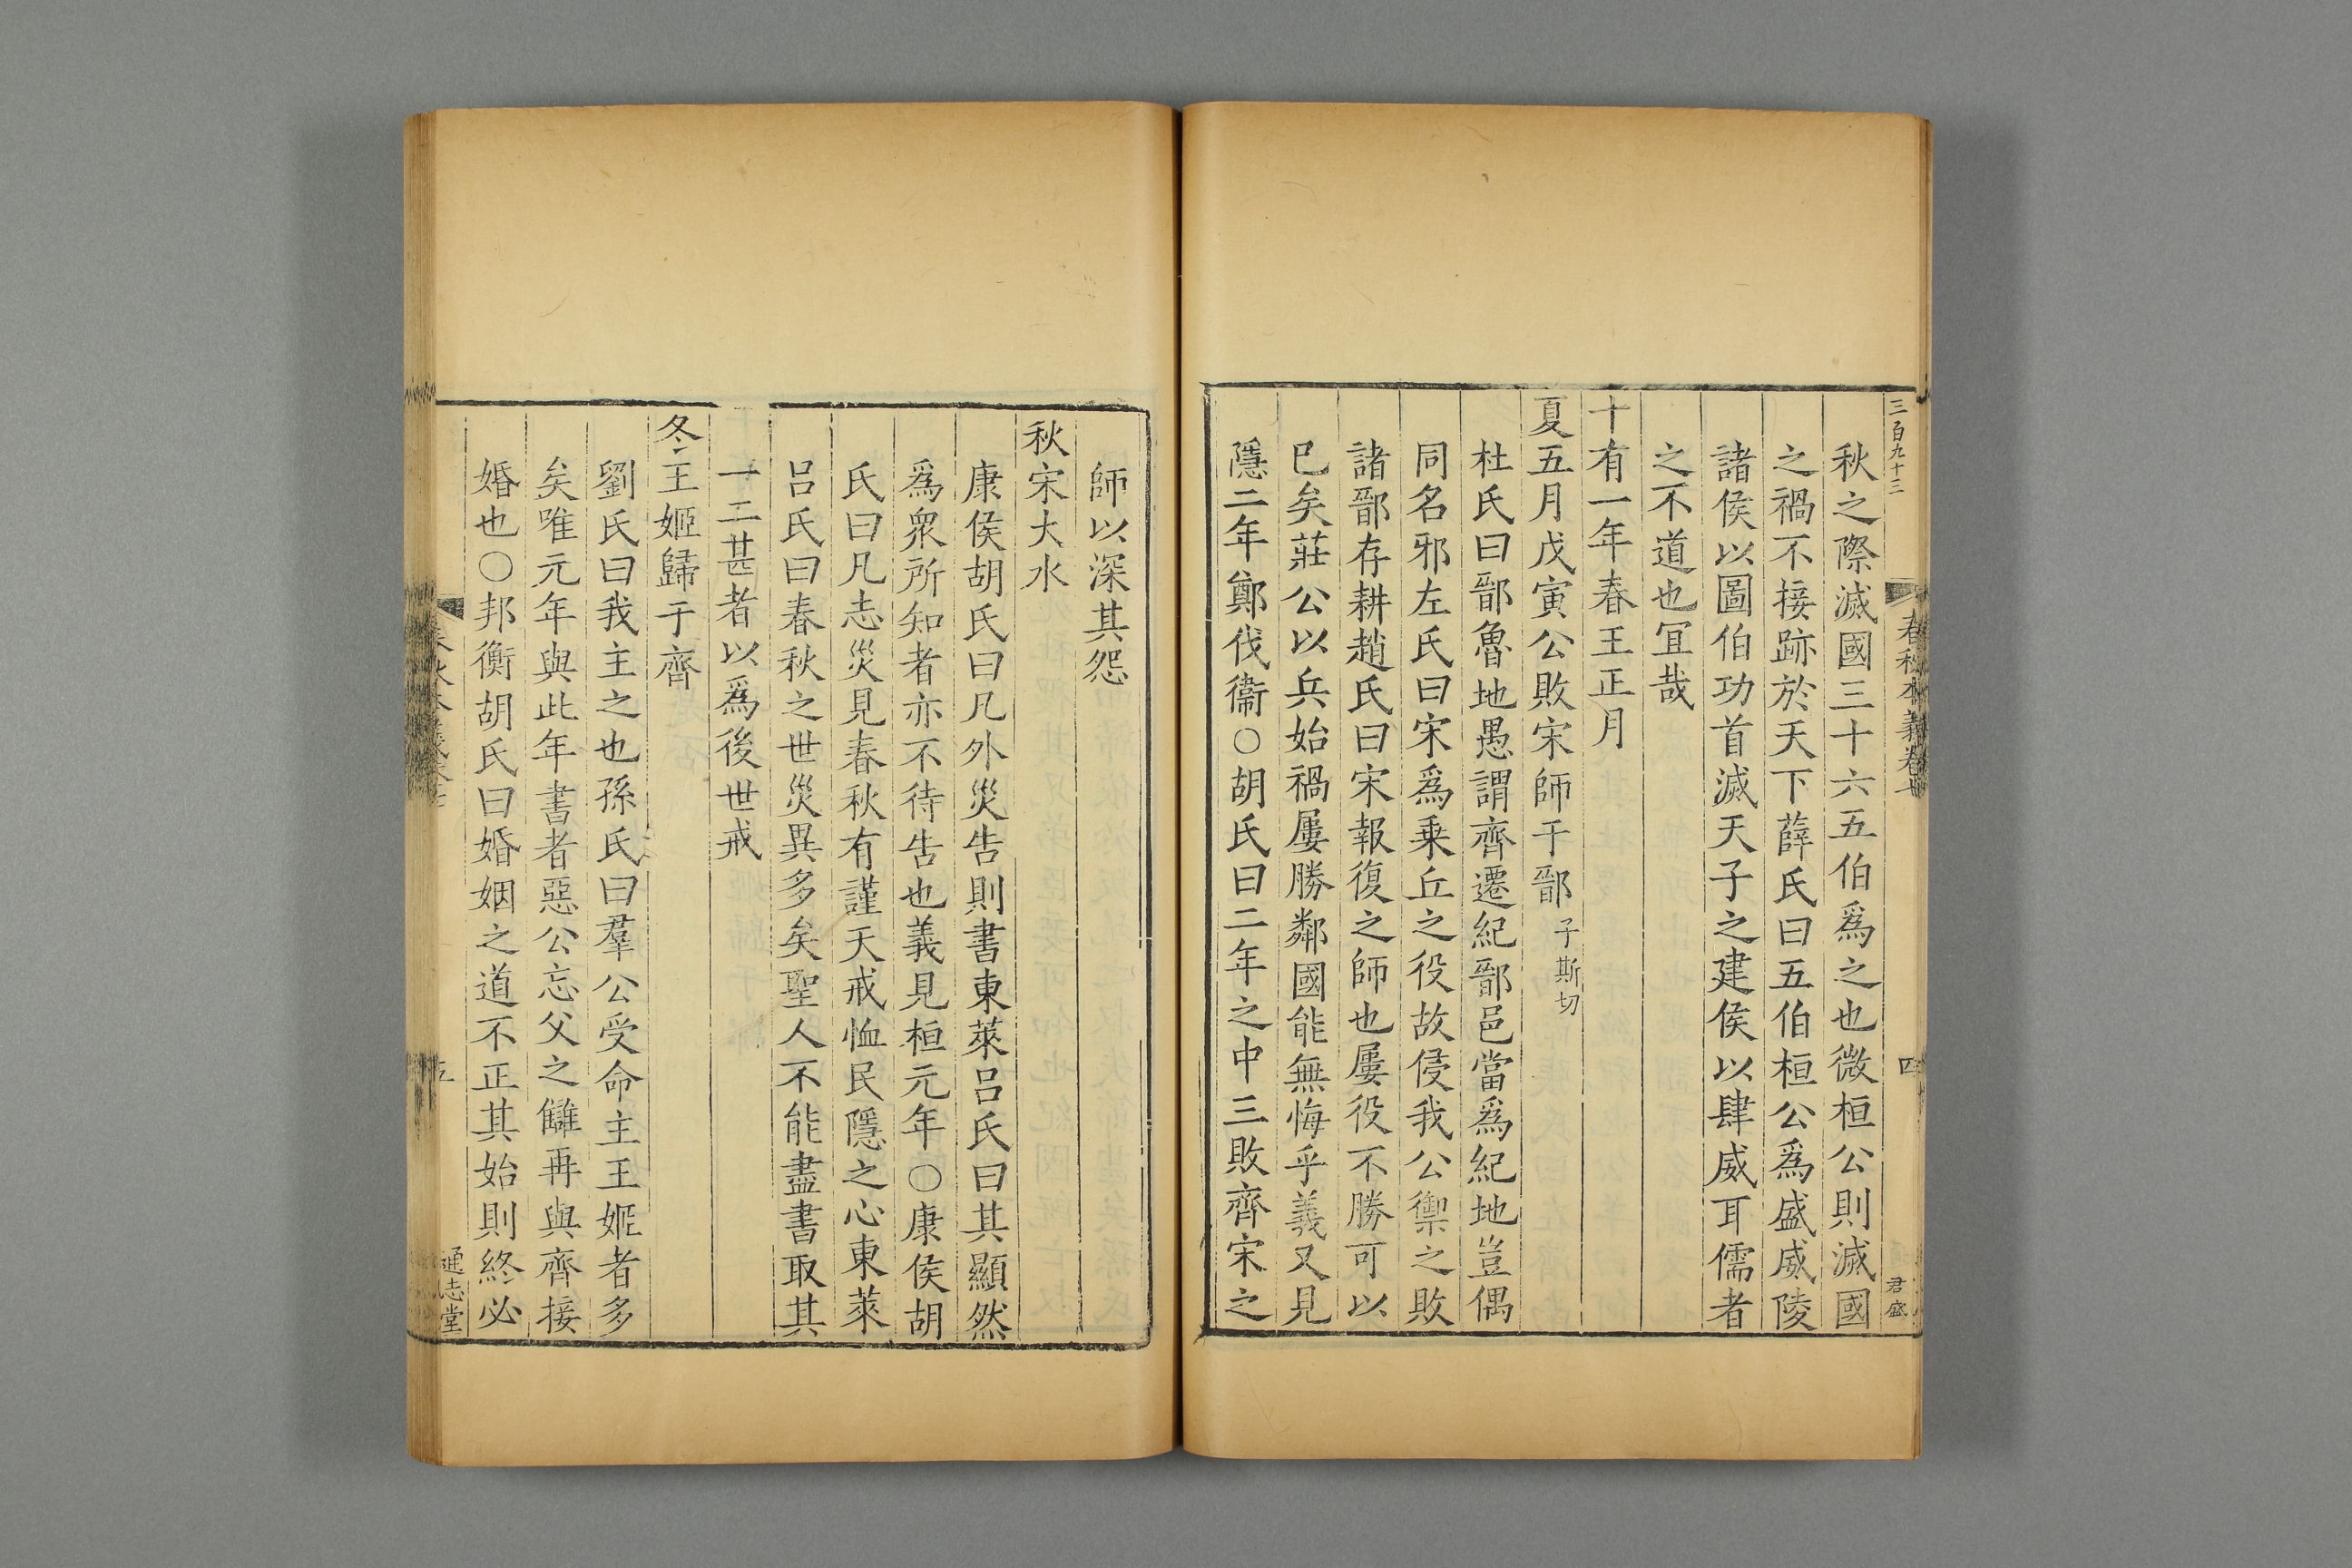 三百九十三
春秋本義卷七
四
君盛
秋之際滅國三十六五伯爲之也微桓公則滅國
之禍不接跡於天下薛氏曰五伯桓公爲盛威陵
諸侯以圖伯功首滅天子之建侯以肆威耳儒者
之不道也冝哉
十有一年春王正月
夏五月戊寅公敗宋師于鄑子斯切
杜氏曰鄑魯地愚謂齊遷紀鄑邑當爲紀地豈偶
同名邪左氏曰宋爲乗丘之役故侵我公禦之敗
諸鄑存耕趙氏曰宋報復之師也屢役不勝可以
已矣莊公以兵始禍屢勝鄰國能無悔乎義又見
隱二年鄭伐衞○胡氏曰二年之中三敗齊宋之
師以深其怨
秋宋大水
康侯胡氏曰凡外災告則書東萊呂氏曰其顯然
爲衆所知者亦不待告也義見桓元年○康侯胡
氏曰凡志災見春秋有謹天戒恤民隱之心東萊
呂氏曰春秋之世災異多矣聖人不能盡書取其
一二甚者以爲後世戒
冬王姬歸于齊
劉氏曰我主之也孫氏曰羣公受命主王姬者多
矣唯元年與此年書者惡公忘父之讎再與齊接
婚也○邦衡胡氏曰婚姻之道不正其始則終必
春秋本義卷七
五
通志堂